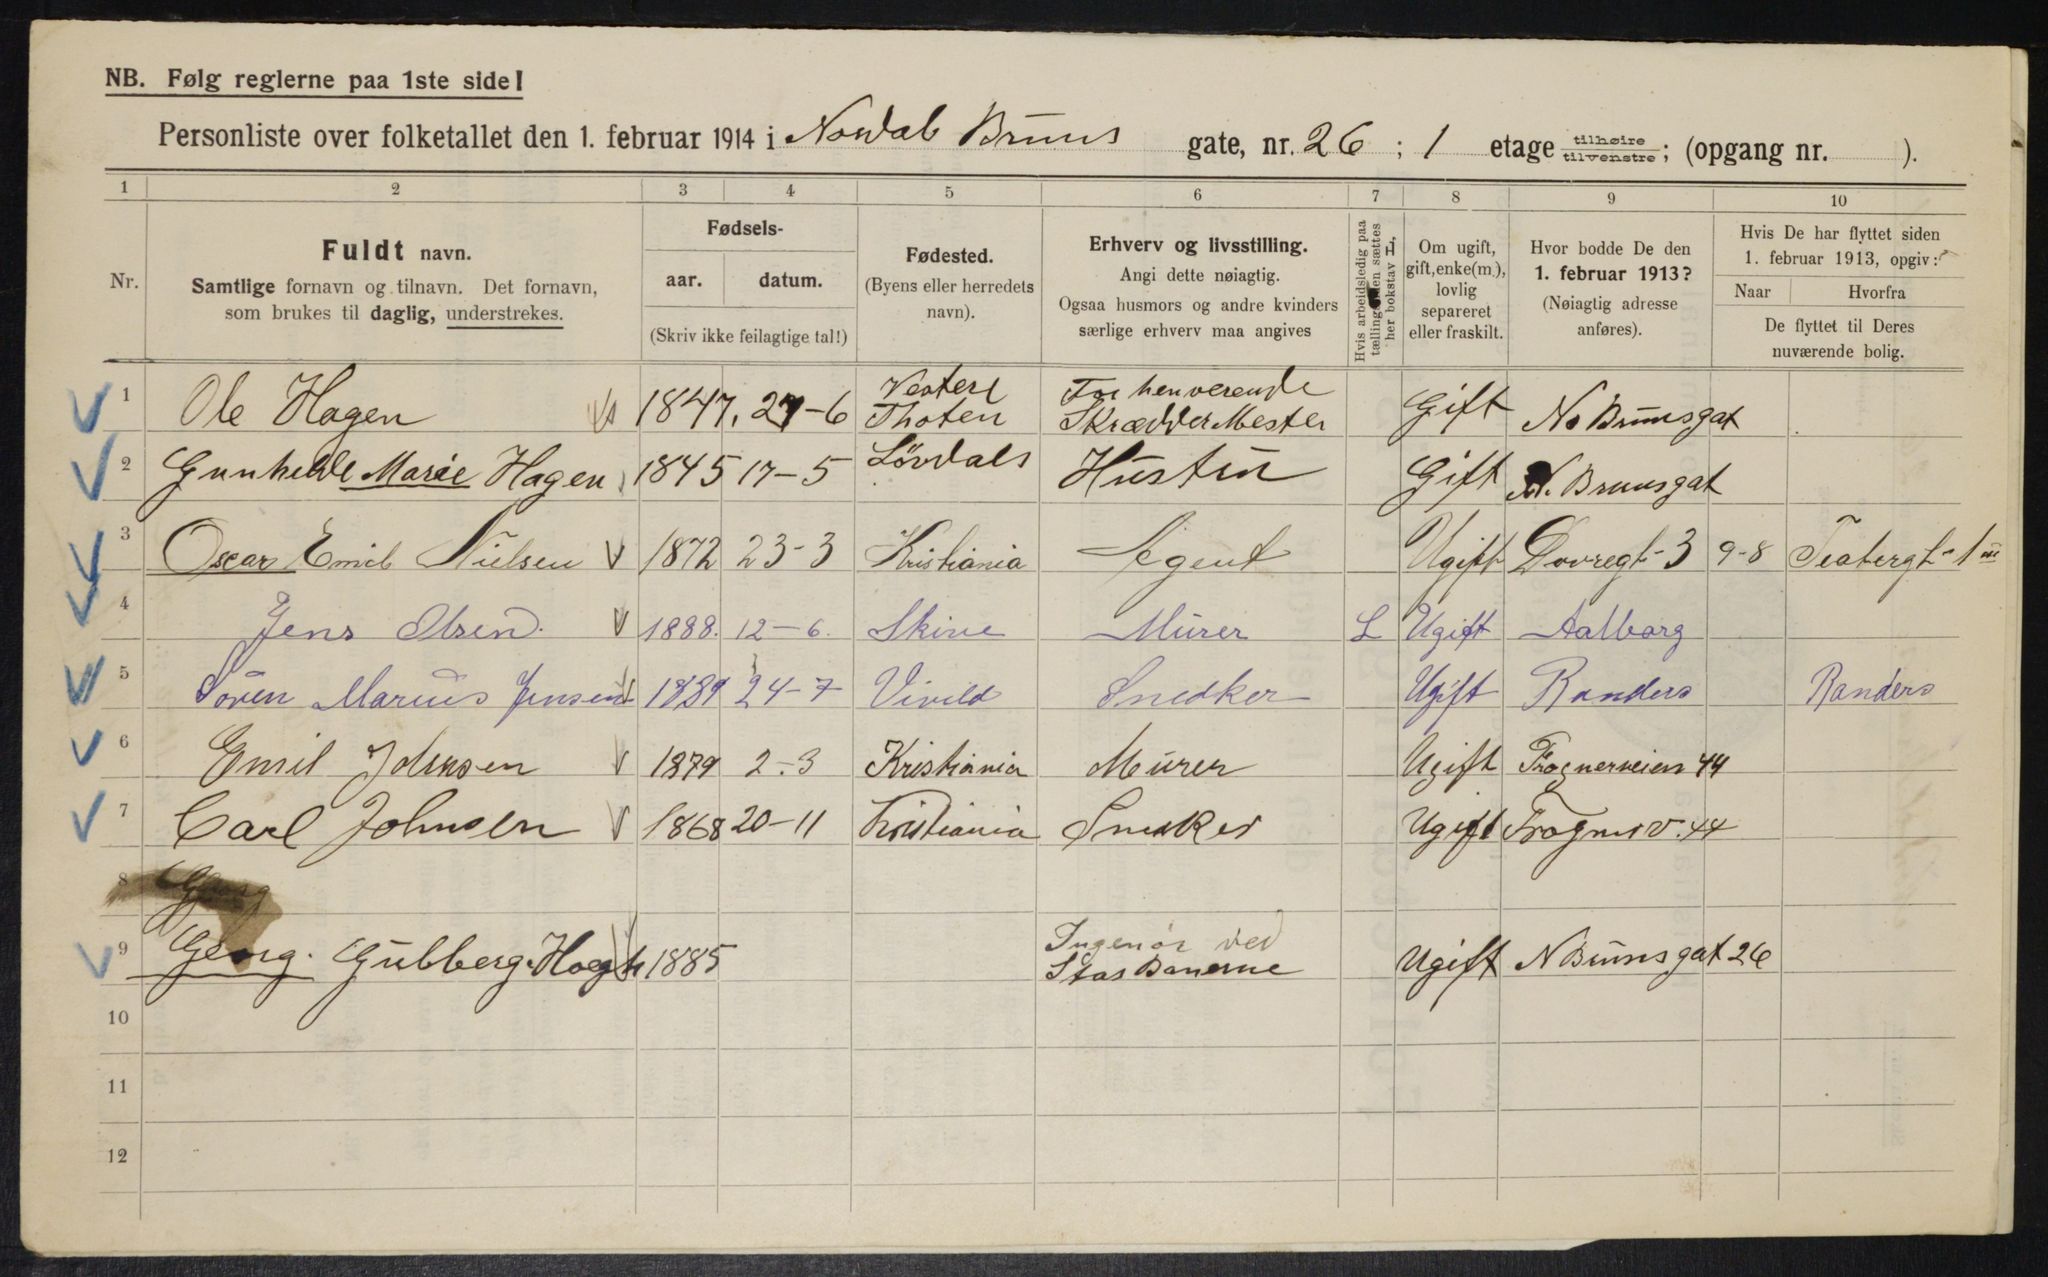 NB. Følg reglerne paa 1ste side!
Personliste over folketallet den 1. februar 1914 i Nordal Bruns gate, nr. 26; 1 etage tilhøire tilvenstre; (opgang nr. ).
1 2 3 4 5 6 7 8 9 10
Nr.
Fuldt navn.
Samtlige fornavn og tilnavn. Det fornavn,
som brukes til daglig, understrekes.
Fødsels-
aar. datum.
(Skriv ikke feilagtige tal!)
Fødested.
(Byens eller herredets
navn).
Erhverv og livsstilling.
Angi dette nøiagtig.
Ogsaa husmors og andre kvinders
særlige erhverv maa angives
Hvis arbeidsledig paa
tællingstiden sættes
her bokstav L,
Om ugift,
gift, enke(m.),
lovlig
separeret
eller fraskilt.
Hvor bodde De den
1. februar 1913?
(Nøiagtig adresse
anføres).
Hvis De har flyttet siden
1. februar 1913, opgiv:
Naar Hvorfra
De flyttet til Deres
nuværende bolig.
1 Ole Hagen 1847. 27-6 Vestere Thoten Forhenverende SkrædderMester Gift No Brunsgat
2 Gunhilde Marie Hagen 1845 17-5 Lövdals Hustru Gift N. Brunsgat
3 Oscar Emil Nielsen 1872 23-3 Kristiania Agent Ugift Dovregt-3 9-8 Teatergt-1 III
4 Jens Olsen. 1888. 12-6. Skive Murer L Ugift Aalborg
5 Sören Marius Jensen 1889 24-7 Vivild Snedker Ugift Randers Randers
6 Emil Johnsen 1879 2-3 Kristiania Murer Ugift Frognerveien 44
7 Carl Johnsen 1868 20-11 Kristiania Snedker Ugift Frognerv. 44
8 Georg
9 Georg. Gulberg. Hoegh 1885 Ingenör ved Stas Banerne Ugift N Brunsgat 26
10
11
12